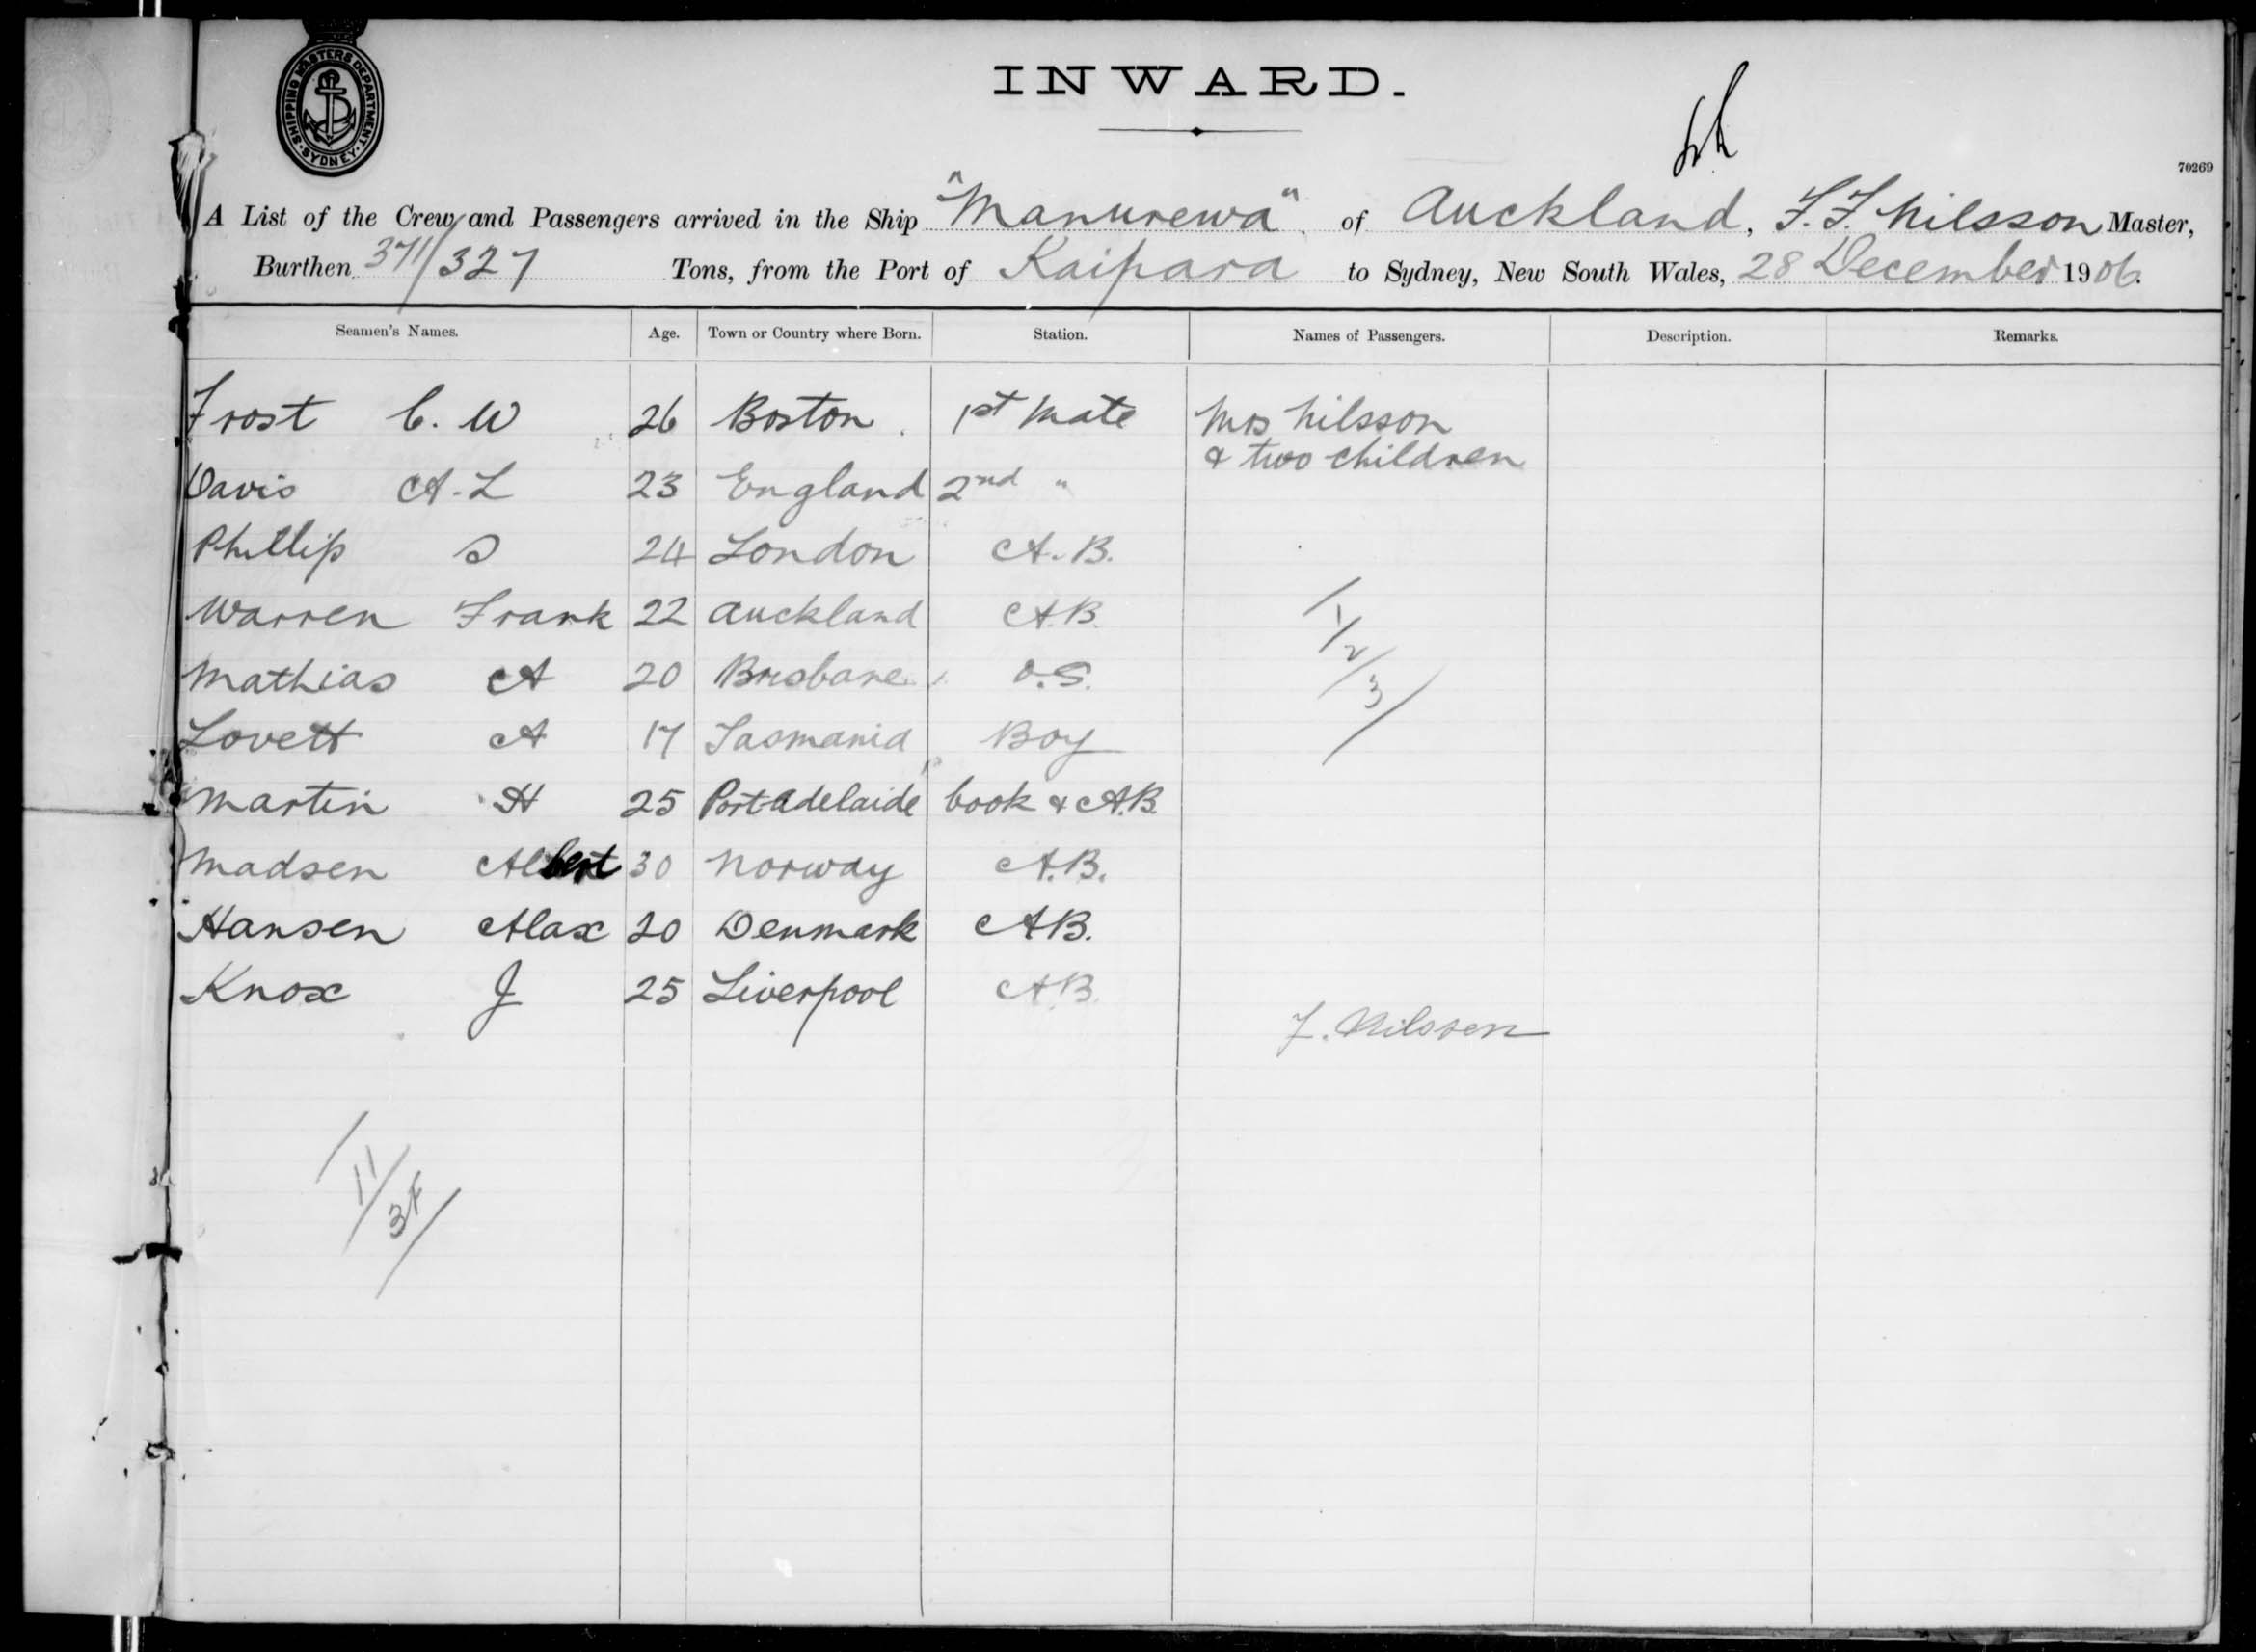 SHIPPING MASTERS DEPARTMENT. SYDNEY.
INWARD.
70269
A List of the Crew and Passengers arrived in the Ship "Manurewa" of Auckland, F.F. Nilsson Master,
Burthen 371/327 Tons, from the Port of Kaipara to Sydney, New South Wales, 28 December 1906.
Seamen's Names. Age. Town or Country where Born. Station. Names of Passengers. Description. Remarks.
Frost C. W 26 Boston. 1st Mate Mrs Nilsson
& two children
Davis A. L 23 England 2nd "
Phillip S 24 London A. B.
Warren Frank 22 Auckland A.B.
Mathias A 20 Brisbane O.S.
Lovett A 17 Tasmania Boy
Martin H 25 Port Adelaide Cook & A.B.
Madsen Albert 30 Norway A.B.
Hansen Alax 20 Denmark AB.
Knox J 25 Liverpool A.B.
F. Nilssen
1/2/3/
11/3F/